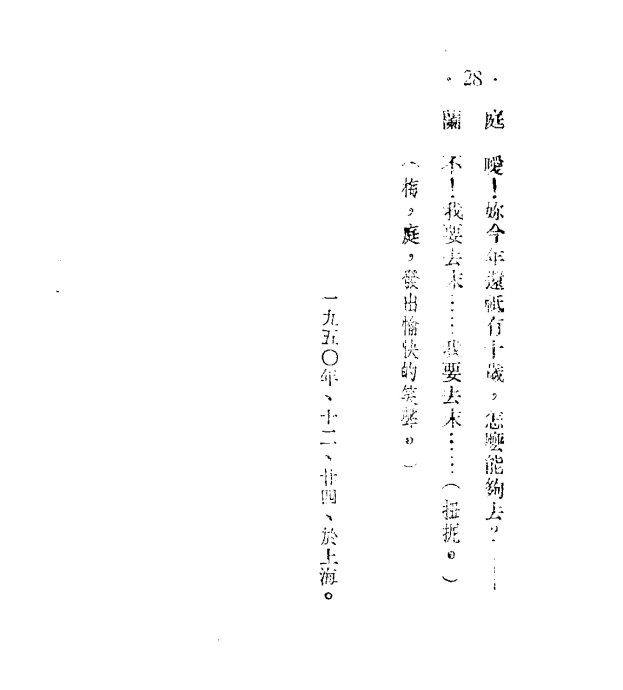 · 28 ·
庭　嗳！妳今年還祇有十歲，怎麼能夠去？——
蘭　不！我要去末……我要去末……（扭捏。）
（梅，庭，發出愉快的笑聲。）
一九五〇年、十二、廿四、於上海。